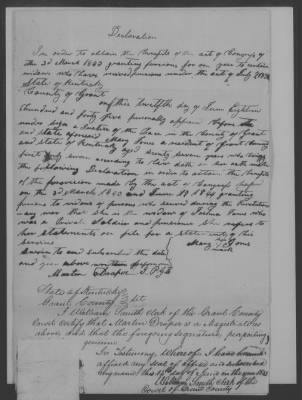 Declaration
In order to obtain the benefits of the act of Congress of
the 3d March 1843 granting pensions for one year to certain
widows who have received pensions under the act of July 7 1838
State of Kentucky
County of Grant
On this twelfth day of June Eighteen
hundred and forty five personally appeared before
under sign a Justice of the Peace in the County of Grant
and State of Kentucky Mary Vone a resident of Grant County
and State of Kentucky aged seventy seven years who being
first duly sworn according to law doth on her oath make
the following Declaration in order to obtain the benefits
of the provision made by the act of Congress passed
on the 3d March 1843 and June 17 1844 granting
pensions to widows of persons who served during the Revolution
ary war that She is the widow of Joshua Vone who
was a
her statements on file for a
service
Sworn to and subscribed the date
and year above written before
Mary Vone
mark
Martin Draper J.P.G.C.
State of Kentucky
Grant County Sct
I William Smith Clerk of the Grant County
Court certify that Martin Draper is a Magistrate as
above and that the foregoing signature purporting
genuine
In Testimony Whereof I have hereunto
affixed my seal of office and subscribed
my name this 12th day of June in the year 1845
William Smith Clerk of the
Court of Grant County